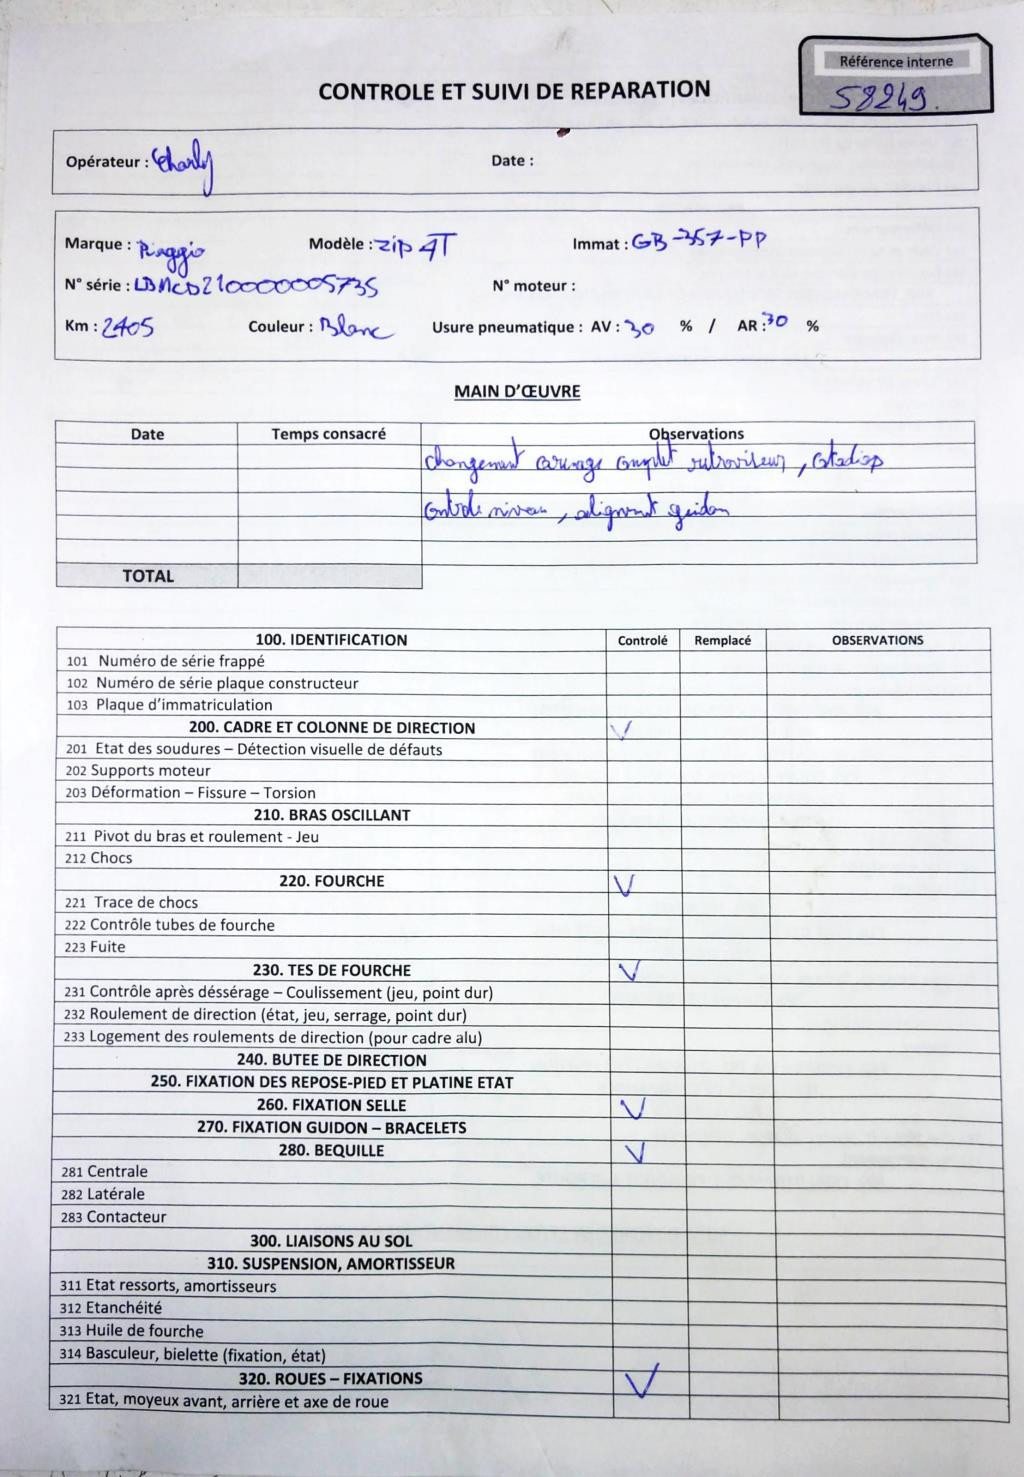 Référence interne
58249.
CONTROLE ET SUIVI DE REPARATION
Opérateur : Charly Date :
Marque : Piaggio Modèle : zip 4T Immat : GB-357-PP
N° série : LBMCD210000005735 N° moteur :
Km : 2405 Couleur : Blanc Usure pneumatique : AV : 30 % / AR : 30 %
MAIN D'ŒUVRE
Date Temps consacré Observations
changement carenage complet retroviseur, catadiop
controle niveau, alignement guidon
TOTAL
100. IDENTIFICATION Controlé Remplacé OBSERVATIONS
101 Numéro de série frappé
102 Numéro de série plaque constructeur
103 Plaque d'immatriculation
200. CADRE ET COLONNE DE DIRECTION V
201 Etat des soudures – Détection visuelle de défauts
202 Supports moteur
203 Déformation – Fissure – Torsion
210. BRAS OSCILLANT
211 Pivot du bras et roulement - Jeu
212 Chocs
220. FOURCHE V
221 Trace de chocs
222 Contrôle tubes de fourche
223 Fuite
230. TES DE FOURCHE V
231 Contrôle après déssérage – Coulissement (jeu, point dur)
232 Roulement de direction (état, jeu, serrage, point dur)
233 Logement des roulements de direction (pour cadre alu)
240. BUTEE DE DIRECTION
250. FIXATION DES REPOSE-PIED ET PLATINE ETAT
260. FIXATION SELLE V
270. FIXATION GUIDON – BRACELETS
280. BEQUILLE V
281 Centrale
282 Latérale
283 Contacteur
300. LIAISONS AU SOL
310. SUSPENSION, AMORTISSEUR
311 Etat ressorts, amortisseurs
312 Etanchéité
313 Huile de fourche
314 Basculeur, bielette (fixation, état)
320. ROUES – FIXATIONS V
321 Etat, moyeux avant, arrière et axe de roue